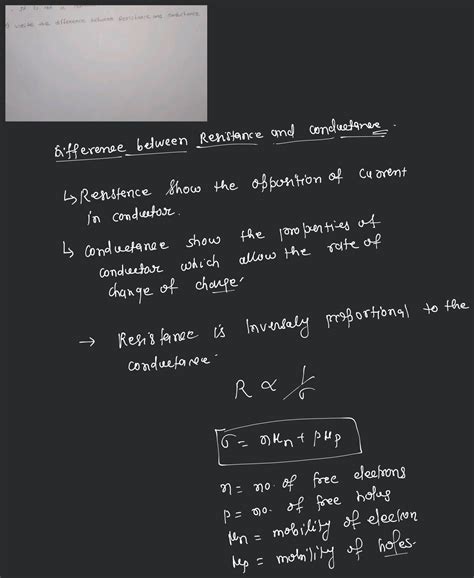 write the difference between Resistance and conductance
Difference between Resistance and conductance.
↳ Resistence show the opposition of current
in conductor.
↳ conductance show the properties of
conductor which allow the rate of
change of charge.
→ Resistance is Inversaly proportional to the
conductance.
R ∝ 1/σ
σ = nμn + pμp
n = no. of free electrons
p = no. of free holes
μn = mobility of electron
μp = mobility of holes.